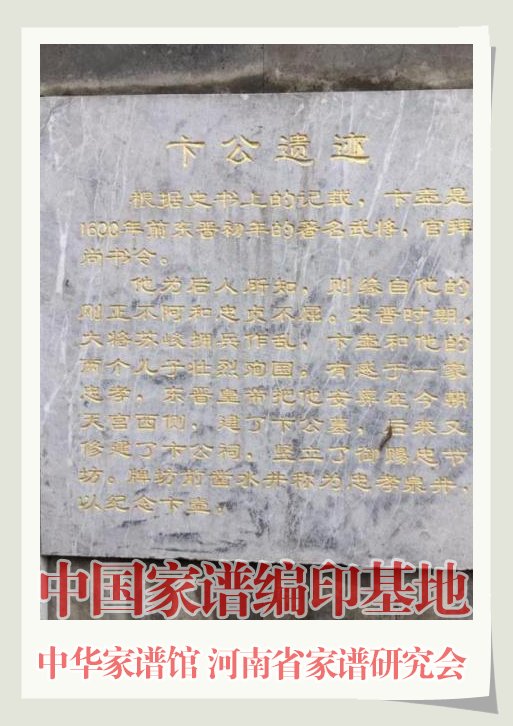 卞公遗迹
根据史书上的记载，卞壶是
1600年前东晋初年的著名武将，官拜
尚书令。
他为后人所知，则缘自他的
刚正不阿和忠贞不屈。东晋时期，
大将苏峻拥兵作乱，卞壶和他的
两个儿子壮烈殉国，有感于一家
忠孝，东晋皇帝把他安葬在今朝
天宫西侧，建了卞公墓，后来又
修建了卞公祠，竖立了御赐忠节
坊。牌坊前凿水井称为忠孝泉井，
以纪念卞壶。
中国家谱编印基地
中华家谱馆 河南省家谱研究会